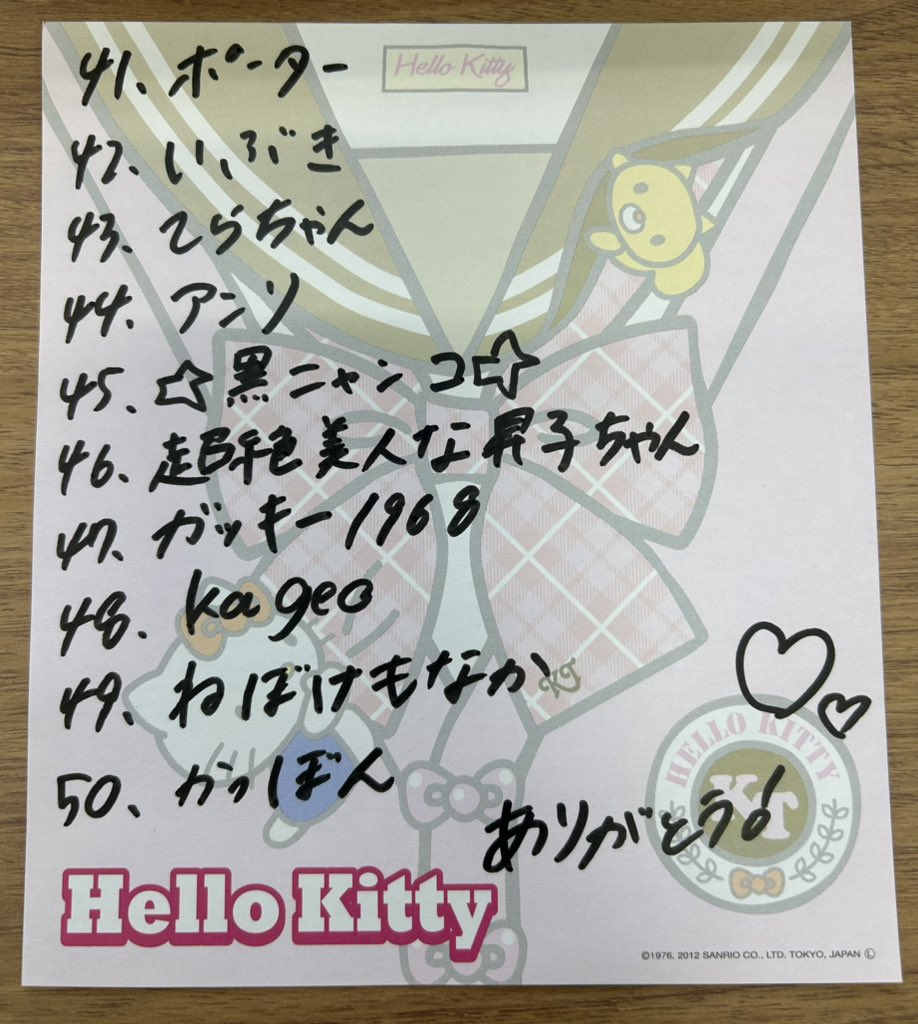 Hello Kitty
41、ポーター
42、いぶき
43、てらちゃん
44、アンソ
45、☆黒ニャンコ☆
46、超絶美人な昇子ちゃん
47、ガッキー1968
48、kageo
49、ねぼけもなか
50、かっぽん
KT
HELLO KITTY
KT
ありがとう!
Hello Kitty
©1976, 2012 SANRIO CO., LTD. TOKYO, JAPAN Ⓛ